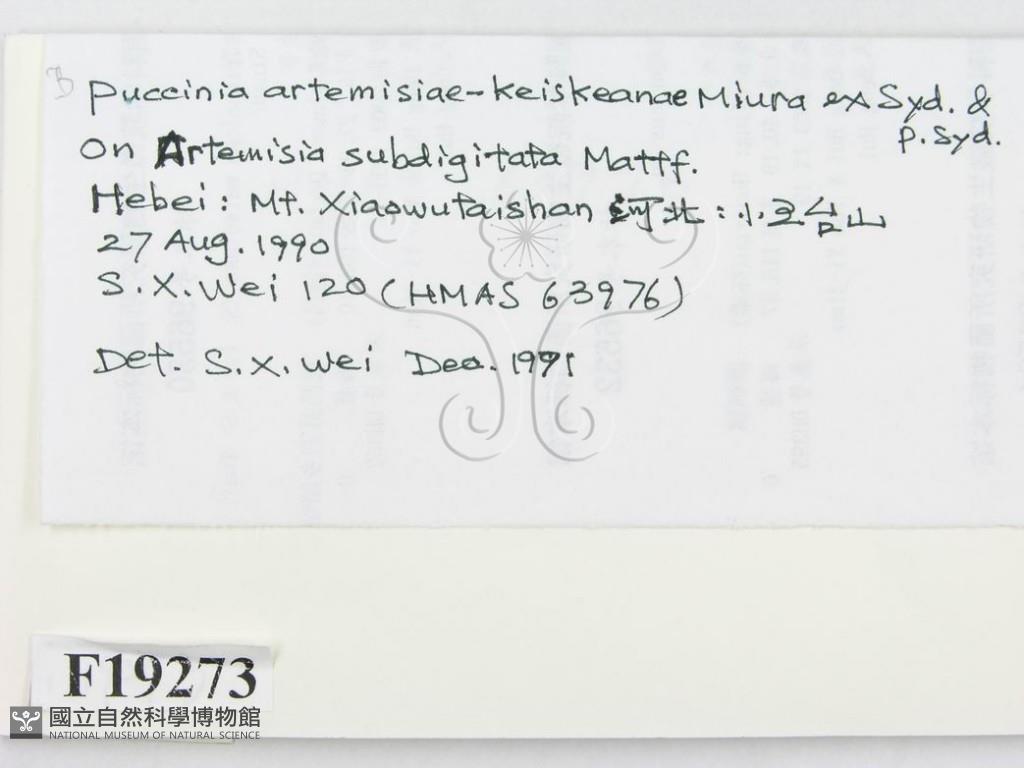 Puccinia artemisiae-keiskeanae Miura ex Syd. & P. Syd.
On Artemisia subdigitata Mattf.
Hebei: Mt. Xiaowutaishan 河北:小五台山
27 Aug. 1990
S.X. Wei 120 (HMAS 63976)
Det. S.X. Wei Dec. 1991
F19273
國立自然科學博物館
NATIONAL MUSEUM OF NATURAL SCIENCE